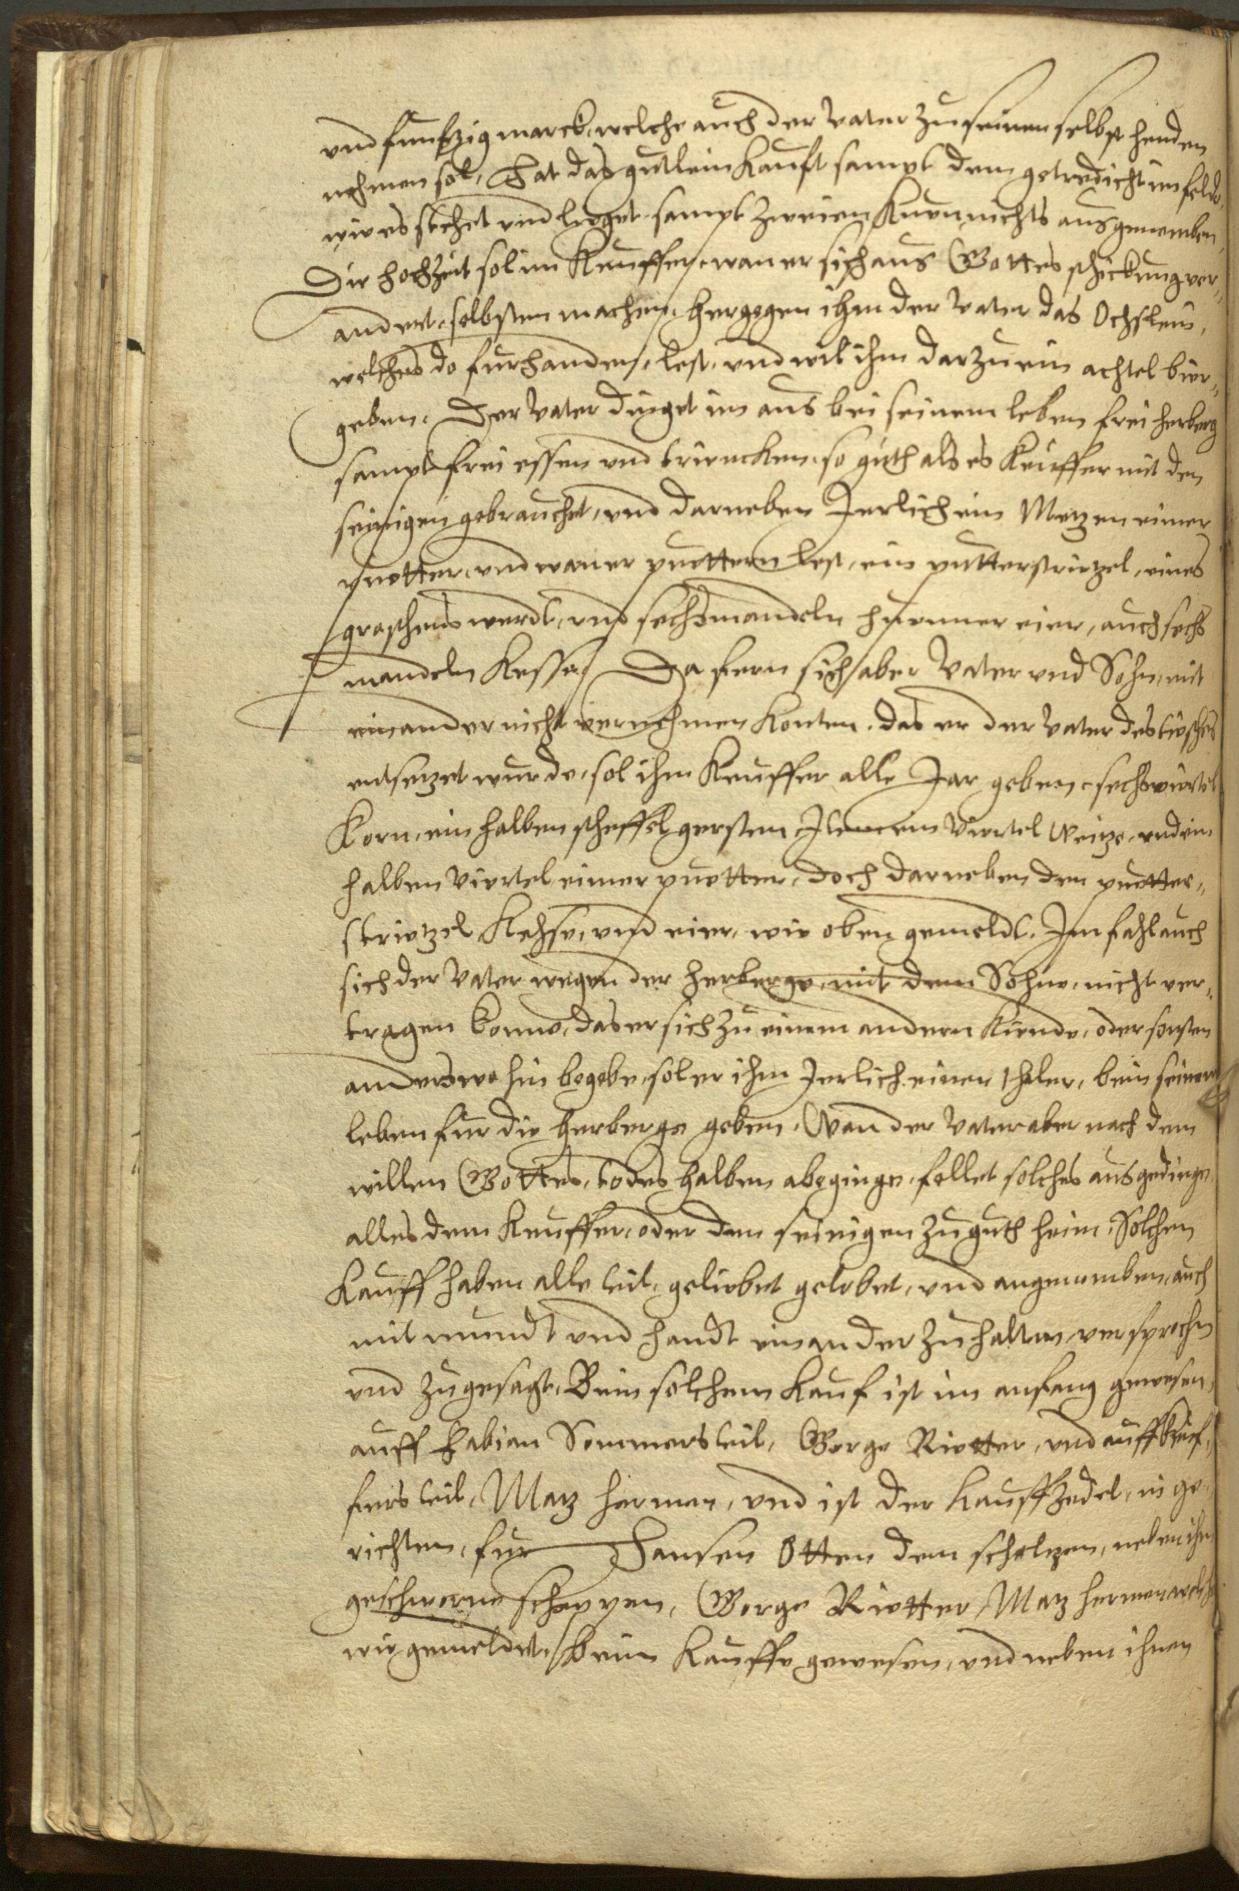 und funfzig marck, welche auch der Vater zu seinen selbst henden
nehmen sol, Hat das gutlein kauft sampt dem getredicht im felde,
wie es stehet und lieget sampt zweien Kuen, nichts ausgenomben,
Die hochzeit sol im Keuffer, wan er sich aus Gottes schickung ver-
andert, selbsten machen, hergegen ihm der Vater das Ochslein,
welches do furhanden, lest, und wil ihm darzu ein achtel bier
geben. Der Vater dinget im aus bei seinem leben frei herberg
sampt frei essen und trincken, so guth als es Keuffer mit den
seinigen gebrauchet, und darneben Jerlich ein Metzen eimer
puotter, und wan er puottern lest, ein putterstrietzel, eines
groschens werdt, und sechs mandeln huenner eier, auch sechs
mandeln Kesse, Da fern sich aber Vater und Sohn, mit
einander nicht vernehmen konten, das er der Vater des tisches
entsezet wurde, sol ihm Keuffer alle Jar geben, sechs viertel
Korn, ein halben scheffel gersten, Item ein Viertel Weitze, und ein
halben Viertel eimer puotter, doch darneben den puotter-
strietzel Kehse, und eier, wie oben gemeldt. Im fahl auch
sich der Vater wegen der herberge, mit dem Sohne, nicht ver-
tragen konne, das er sich zu einem andern Kinde, oder sonsten
anderswo hin begebe, sol er ihm Jerlich einen thaler, bein seinem
leben fur die herberge geben, Wan der Vater aber nach dem
willen Gottes, todes halben abeginge, fellet solches ausgedinge
alles dem Keuffer, oder den seinigen zu guth heim, Solchen
Kauff haben alle teil, geliebet gelobet, und angenomben, auch
mit mundt und handt einander zu halten, versprochen
und zugesagt, Bein solchem Kauf ist im anfang gewesen,
auff Fabian Sommers teil, George Rietter, und auff Keuf-
fers teil, Matz herman, und ist der Kauffzedel, in ge-
richten, fur Hansen Otten dem scholzen, neben ihm
geschworne scheppen, George Rietter, Matz herman welche
wie gemeldet, beim Kauffe gewesen, und neben ihnen